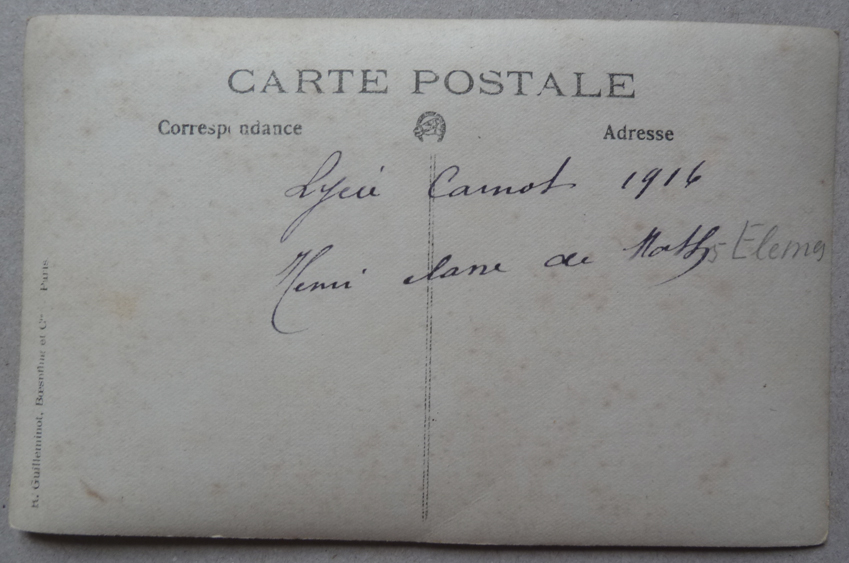 CARTE POSTALE
Correspondance
Adresse
Lycée Carnot 1916
Henri classe de Maths Elems
R. Guilleminot, Bœspflug et Cie - Paris